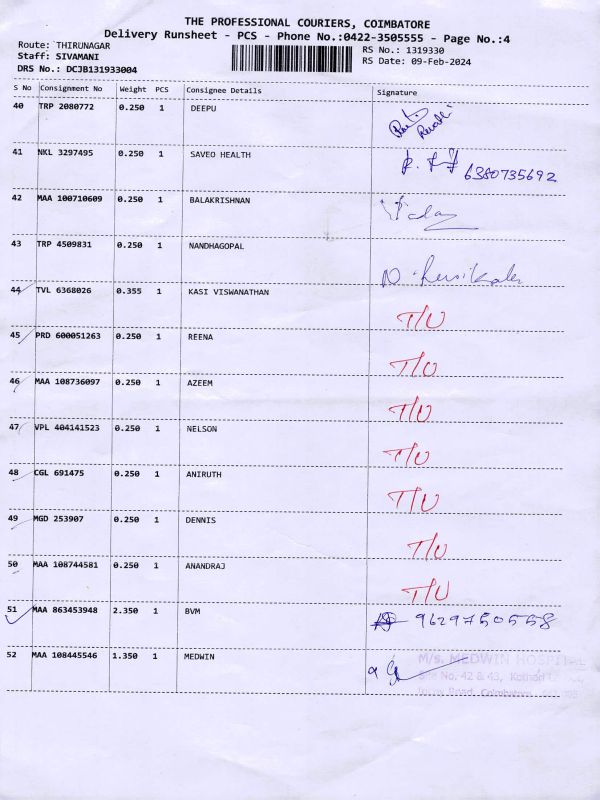 THE PROFESSIONAL COURIERS, COIMBATORE
Delivery Runsheet - PCS - Phone No.:0422-3505555 - Page No.:4
Route: THIRUNAGAR
Staff: SIVAMANI
DRS No.: DCJB131933004
RS No.: 1319330
RS Date: 09-Feb-2024
S No Consignment No Weight PCS Consignee Details Signature
40 TRP 2080772 0.250 1 DEEPU
41 NKL 3297495 0.250 1 SAVEO HEALTH 6380735692
42 MAA 100710609 0.250 1 BALAKRISHNAN
43 TRP 4509831 0.250 1 NANDHAGOPAL
44 TVL 6368026 0.355 1 KASI VISWANATHAN T/U
45 PRD 600051263 0.250 1 REENA T/U
46 MAA 108736097 0.250 1 AZEEM T/U
47 VPL 404141523 0.250 1 NELSON T/U
48 CGL 691475 0.250 1 ANIRUTH T/U
49 MGD 253907 0.250 1 DENNIS T/U
50 MAA 108744581 0.250 1 ANANDRAJ T/U
51 MAA 863453948 2.350 1 BVM 9629750558
52 MAA 108445546 1.350 1 MEDWIN
M/s. MEDWIN HOSPITAL
Site No. 42 & 43,
Road, Coimbatore